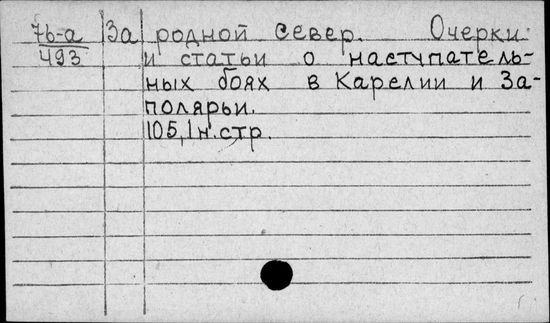 7б-а За родной север. Очерки
493 и статьи о наступатель-
ных боях в Карелии и За-
полярьи.
105,1н.стр.